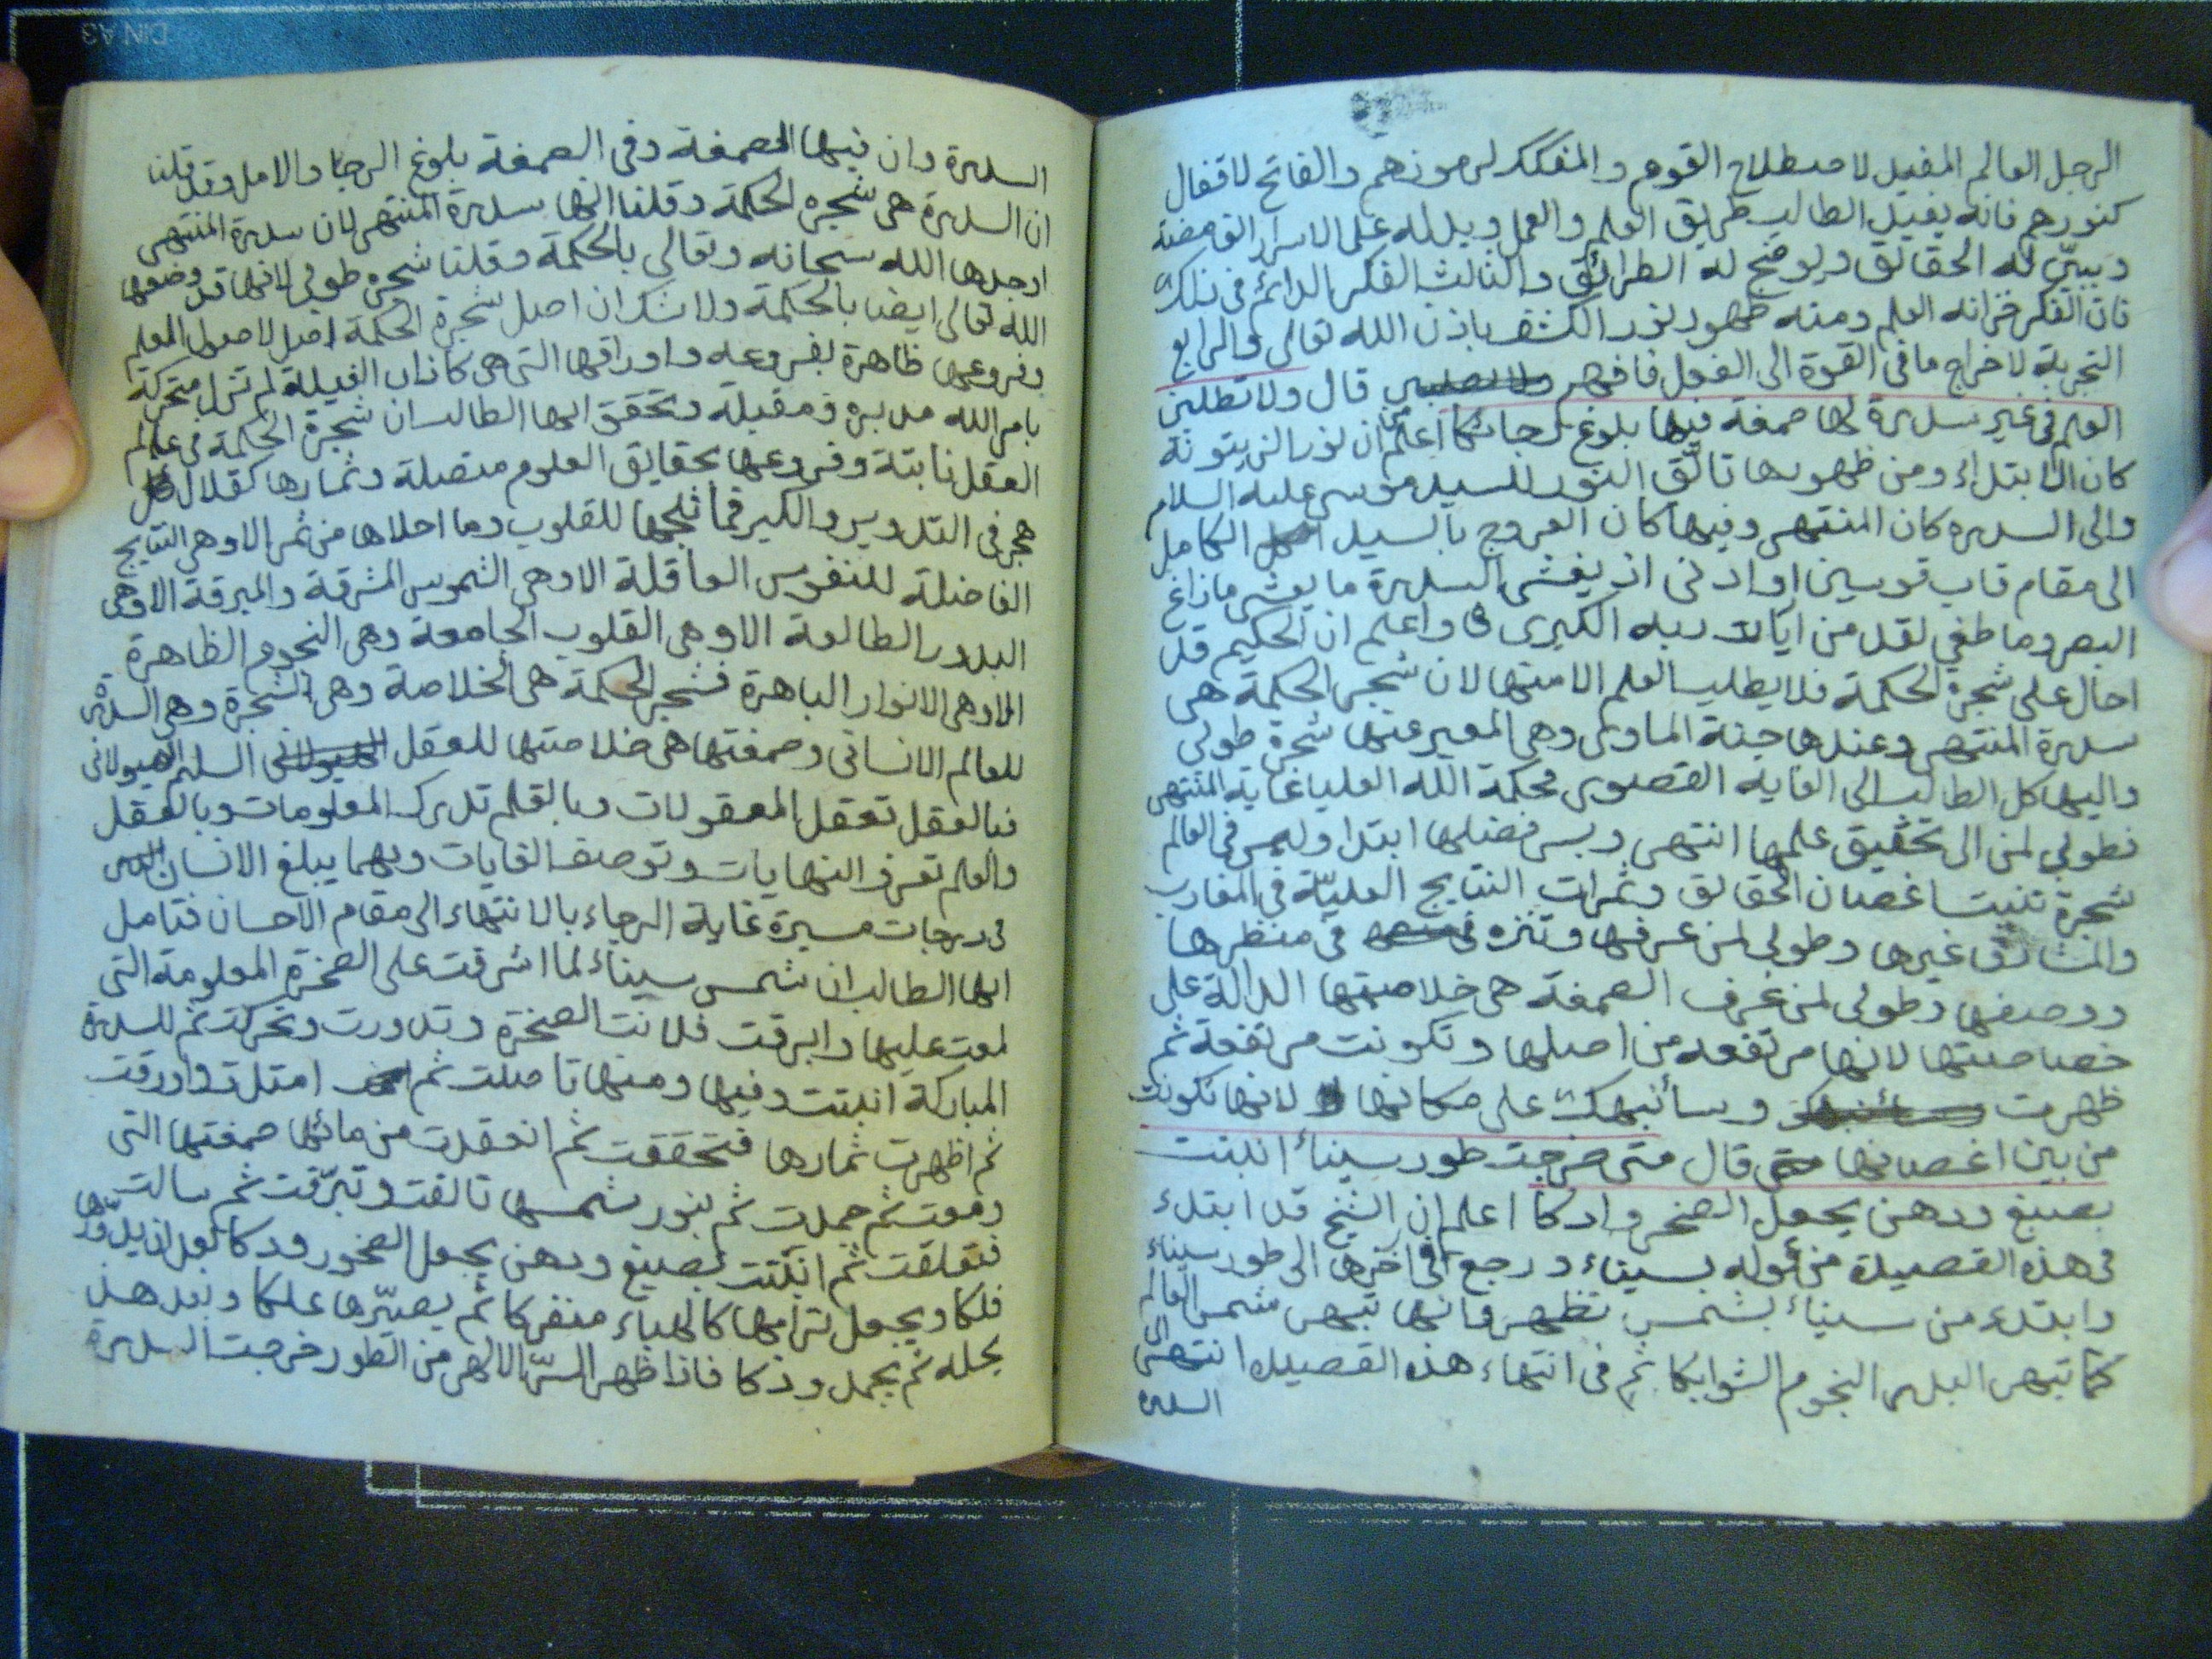 الرجل العالم المفيد لاصطلاح القوم والمفكك لرموزهم والفاتح لاقفال
كنوزهم فانه يفيد الطالب طريق العلم والعمل ويدله على الاسرار الغامضة
ويبيّن له الحقائق ويوضح له الطرائق والثالث الفكر الدائم في ذلك
فان الفكر خزانه العلم ومنه ظهور نور الكشف باذن الله تعالى والرابع
التجربة لاخراج ما في القوة الى الفعل فافهم قال ولا تطلبن
العلم في غير سدرة لها صمغة فيها بلوغ رجائكا اعلم ان نور الزيتونة
كان الابتداء ومن ظهورها تألّق النور للسيد موسى عليه السلام
والى السدره كان المنتهى وفيها كان العروج بالسيد الكامل
الى مقام قاب قوسين او ادنى اذ يغشى السدرة ما يغشى ما زاغ
البصر وما طغى لقد من آيات ربه الكبرى واعلم ان الحكيم قد
احال على شجرة الحكمة فلا يطلب العلم الا منها لان شجر الحكمة هي
سدرة المنتهى وعندها جنة الماوى وهي المعبر عنها شجرة طوبى
واليها كل الطالب الى الغايه القصوى محكمة الله العليا غاية المنتهى
فطوبى لمن الى تحقيق علمها انتهى وبسر فضلها ابتدا وليس في العالم
شجرة تنبت اغصان الحقائق وثمرات النتايج العليّة في المغارب
والمشارق غيرها وطوبى لمن عرفها وتنزه في منظرها
ووصفها وطوبى لمن عرف الصمغة هي خلاصتها الدالة على
خصاصيتها لانها مرتفعه من اصلها وتكونت مرتفعة ثم
ظهرت وسأنبهك على مكانها لانها تكونت
من بين اغصانها قال متى خرجت طور سيناء انبتت
بصبغ ودهن يجعل الصخر وادكا اعلم ان الشيخ قد ابتدء
في هذه القصيدة من أوله بسيناء ورجع في اخرها الى طور سيناء
وابتدء من سيناء بشمس تظهر فانها تبهر شمس العالم
كما تبهر البدر النجوم الشوابكا ثم في انتهاء هذه القصيده انتهى الى
السدره
السدرة وان فيها الصمغة وفي الصمغة بلوغ الرجا والامل وقد قلنا
ان السدرة هي شجره الحكمة وقلنا انها سدرة المنتهى لان سدرة المنتهى
اوجدها الله سبحانه وتعالى بالحكمة وقلنا شجره طوبى لانها قد وضعها
الله تعالى ايضا بالحكمة ولا شك ان اصل شجرة الحكمة اصل لاصول العلم
وفروعها ظاهرة بفروعه واوراقها التي هي كاذان الفيلة لم تزل متحركة
بامر الله مدبره ومقبلة وتحقق ايها الطالب ان شجرة الحكمة في عالم
العقل نابتة وفروعها بحقايق العلوم متصلة وثمارها كقلال
هجر في التدوير والكبر فما ثلجها للقلوب وما احلاها من ثمر الا وهي النتايج
الفاضلة للنفوس العاقلة الا وهي الشموس المشرقة والمبرقة الا وهي
البدور الطالعة الا وهي القلوب الجامعة وهي النجوم الظاهرة
الا وهي الانوار الباهرة فشجر الحكمة هي الخلاصة وهي الشجرة وهي السدرة
للعالم الانساني وصمغتها هي خلاصتها للعقل السليم الهيولاني
فبالعقل تعقل المعقولات وبالعلم تدرك المعلومات وبالعقل
والعلم تعرف النهايات وتوصف الغايات وبهما يبلغ الانسان
في درجات مسيره غاية الرجاء بالانتهاء الى مقام الاحسان فتامل
ايها الطالب ان شمس سيناء لما اشرقت على الصخرة المعلومة التي
لمعت عليها وابرقت فلانت الصخرة وتدورت وتحركت ثم للسدرة
المباركة انبتت وفيها ومنها تاصلت ثم امتلت واورقت
ثم اظهرت ثمارها فتحققت ثم انعقدت من مائها صمغتها التي
رفعت ثم جملت ثم بنور شمسها تالقت وتبرّقت ثم سالت
فتعلقت ثم انبتت بصبغ ودهن يجعل الصخور ودكا بعد ان يدوّرها
فلكا ويجعل ترابها كالهباء منفركا ثم يصيّرها علكا وبعد هذا
يحله ثم يجمد وذكا فاذا ظهر السرّ الالهي من الطور خرجت السدرة